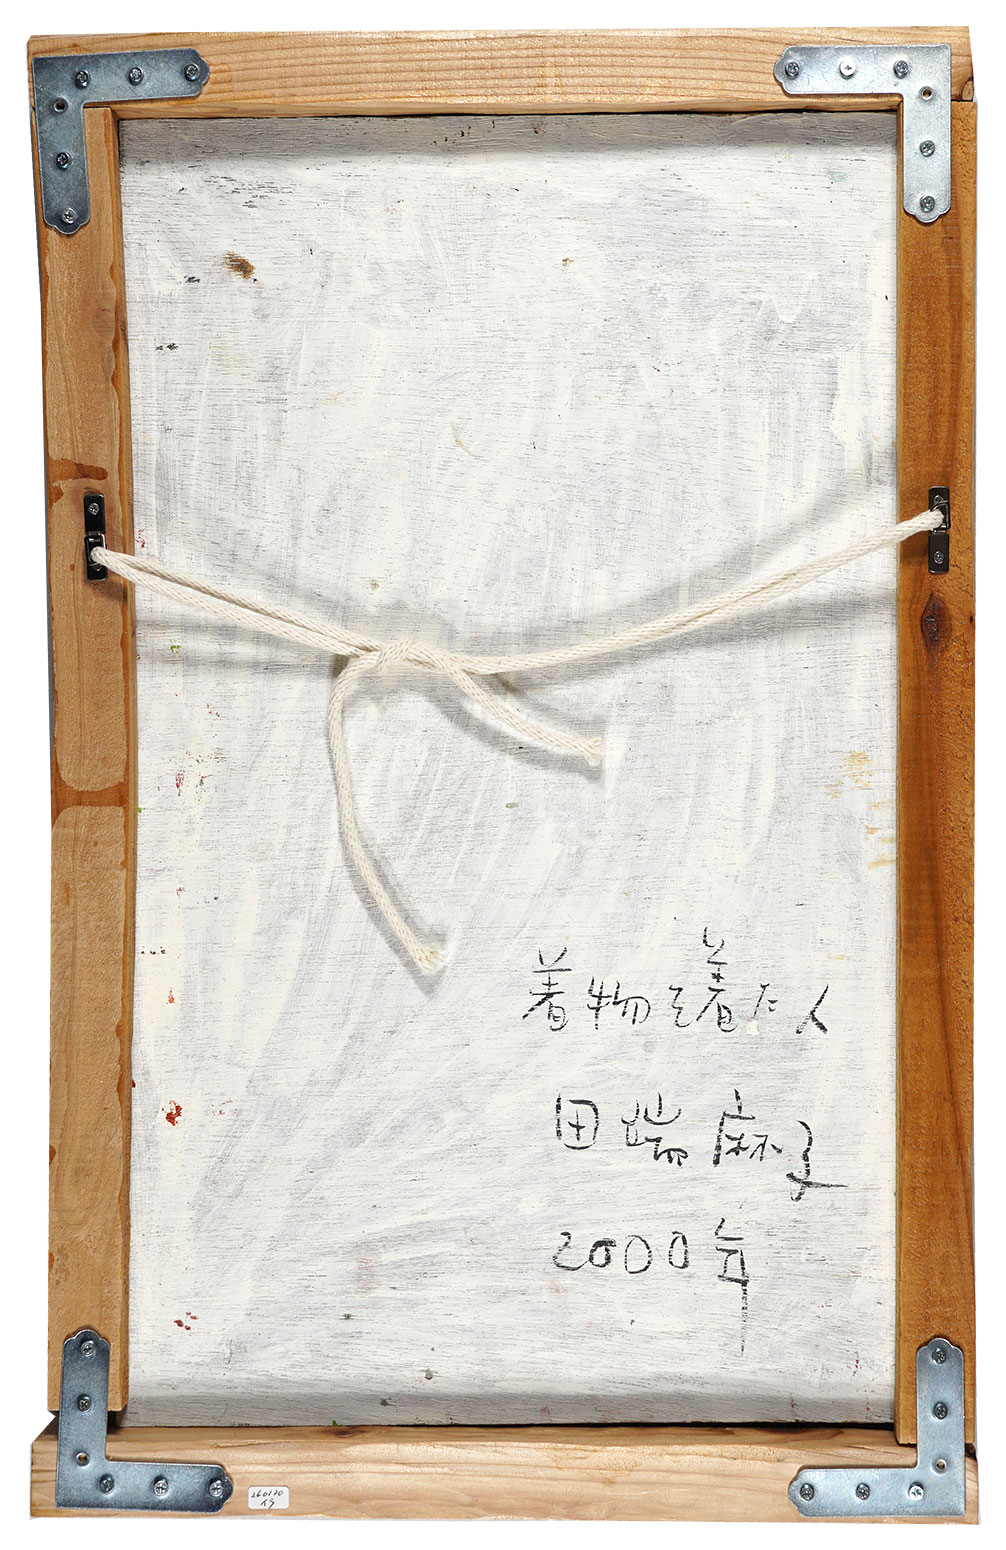 着物を着た人
田端麻子
2000年
260120